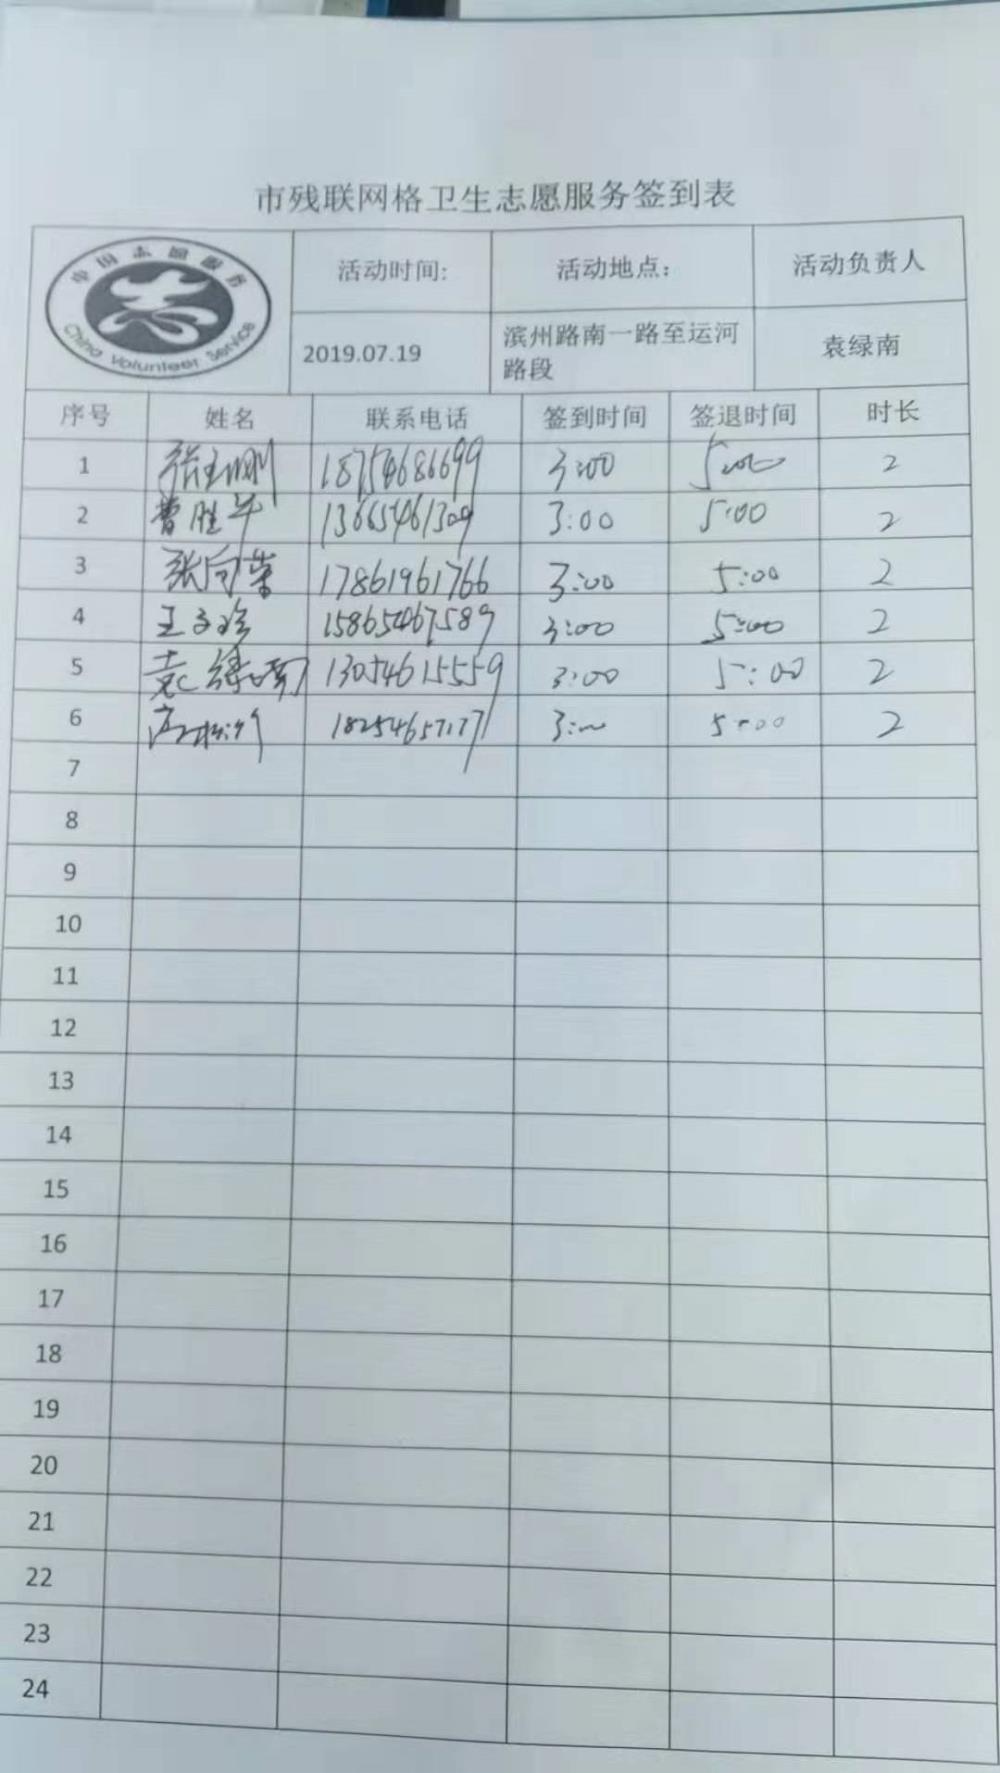 市残联网格卫生志愿服务签到表
中国志愿服务
China Volunteer Service
活动时间: 活动地点: 活动负责人
2019.07.19 滨州路南一路至运河 袁绿南
路段
序号 姓名 联系电话 签到时间 签退时间 时长
1 18754686699 3:00 5:00 2
2 曹胜军 13665461309 3:00 5:00 2
3 张向荣 17861961766 3:00 5:00 2
4 王文珍 15865467589 3:00 5:00 2
5 袁绿南 13054615559 3:00 5:00 2
6 3:00 5:00 2
7
8
9
10
11
12
13
14
15
16
17
18
19
20
21
22
23
24